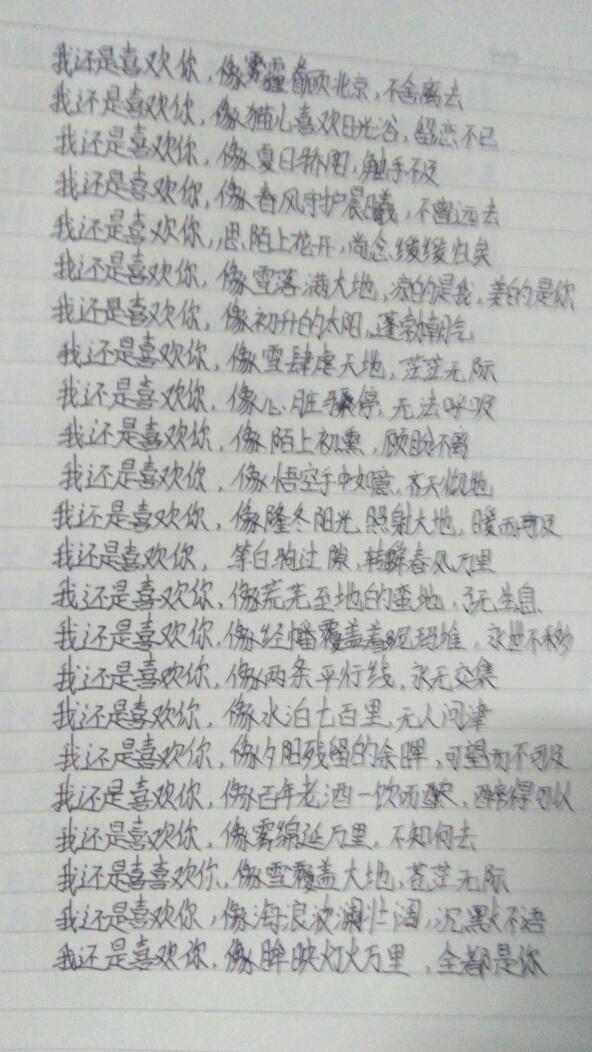 我还是喜欢你，像雾霾眷顾北京，不舍离去
我还是喜欢你，像猫儿喜欢日光浴，留恋不已
我还是喜欢你，像夏日骄阳，触手不及
我还是喜欢你，像春风守护晨曦，不曾远去
我还是喜欢你，思陌上花开，尚念缓缓归矣
我还是喜欢你，像雪落满大地，凉的是我，美的是你
我还是喜欢你，像初升的太阳，蓬勃朝气
我还是喜欢你，像雪肆虐天地，茫茫无际
我还是喜欢你，像心脏骤停，无法呼吸
我还是喜欢你，像陌上初熏，顾盼不离
我还是喜欢你，像悟空手中如意，齐天傲地
我还是喜欢你，像隆冬阳光，照射大地，暖而可及
我还是喜欢你，等白驹过隙，转瞬春风万里
我还是喜欢你，像荒芜至地的蛮地，了无生息
我还是喜欢你，像经幡覆盖着尼玛堆，永世不移
我还是喜欢你，像两条平行线，永无交集
我还是喜欢你，像水泊七百里，无人问津
我还是喜欢你，像夕阳残留的余晖，可望而不可及
我还是喜欢你，像百年老酒一饮而醉，醉得可以
我还是喜欢你，像雾绵延万里，不知何去
我还是喜喜欢你，像雪覆盖大地，苍茫无际
我还是喜欢你，像海浪波澜壮阔，沉默不语
我还是喜欢你，像眸映灯火万里，全都是你